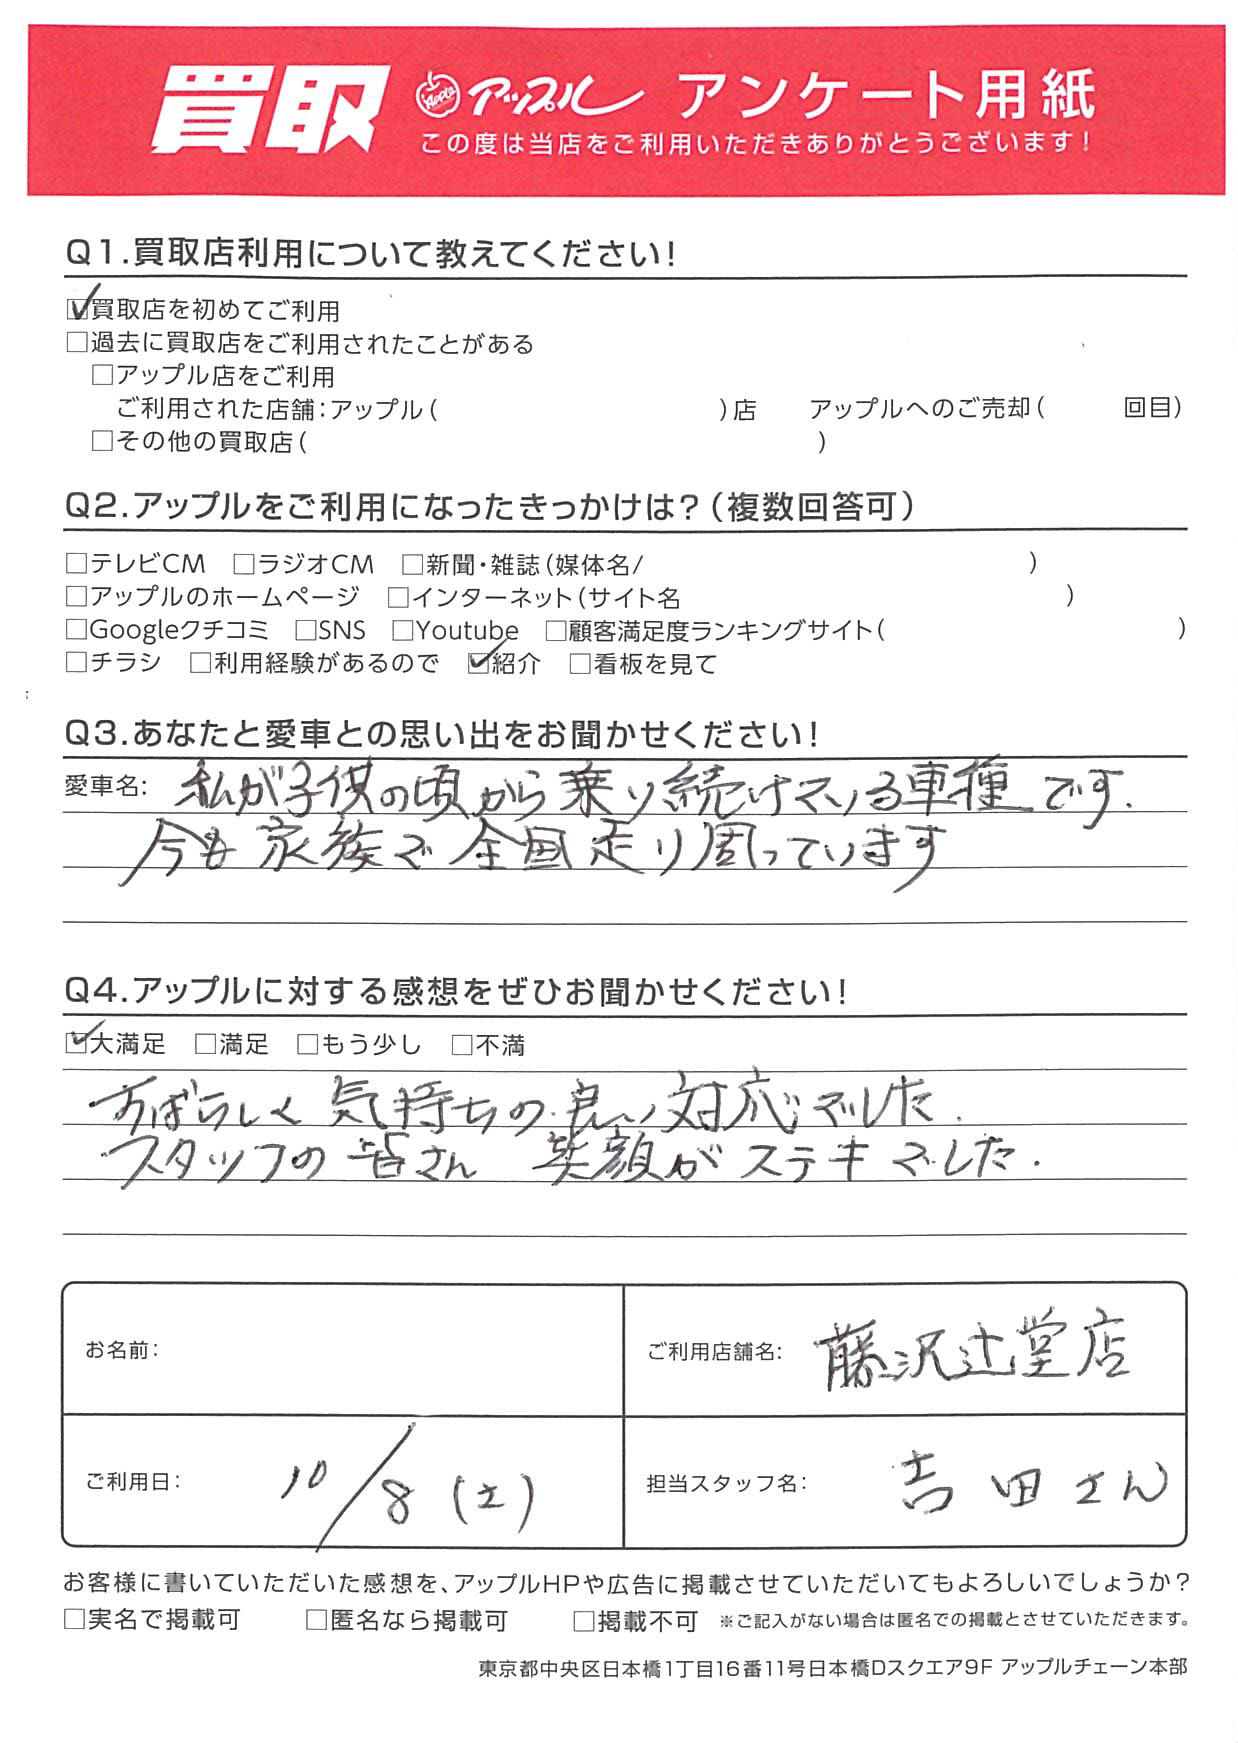 買取 アップル アンケート用紙
この度は当店をご利用いただきありがとうございます!
Q1.買取店利用について教えてください!
☑買取店を初めてご利用
□過去に買取店をご利用されたことがある
□アップル店をご利用
ご利用された店舗:アップル( )店 アップルへのご売却( 回目)
□その他の買取店( )
Q2.アップルをご利用になったきっかけは?(複数回答可)
□テレビCM □ラジオCM □新聞・雑誌(媒体名/ )
□アップルのホームページ □インターネット(サイト名 )
□Googleクチコミ □SNS □Youtube □顧客満足度ランキングサイト( )
□チラシ □利用経験があるので ☑紹介 □看板を見て
Q3.あなたと愛車との思い出をお聞かせください!
愛車名: 私が子供の頃から乗り続けている車種です.
今も家族で全国走り周っています
Q4.アップルに対する感想をぜひお聞かせください!
☑大満足 □満足 □もう少し □不満
すばらしく気持ちの良い対応でした.
スタッフの皆さん 笑顔がステキでした.
お名前:
ご利用店舗名: 藤沢辻堂店
ご利用日: 10/8(土)
担当スタッフ名: 吉田さん
お客様に書いていただいた感想を、アップルHPや広告に掲載させていただいてもよろしいでしょうか?
□実名で掲載可 □匿名なら掲載可 □掲載不可 ※ご記入がない場合は匿名での掲載とさせていただきます。
東京都中央区日本橋1丁目16番11号日本橋Dスクエア9F アップルチェーン本部